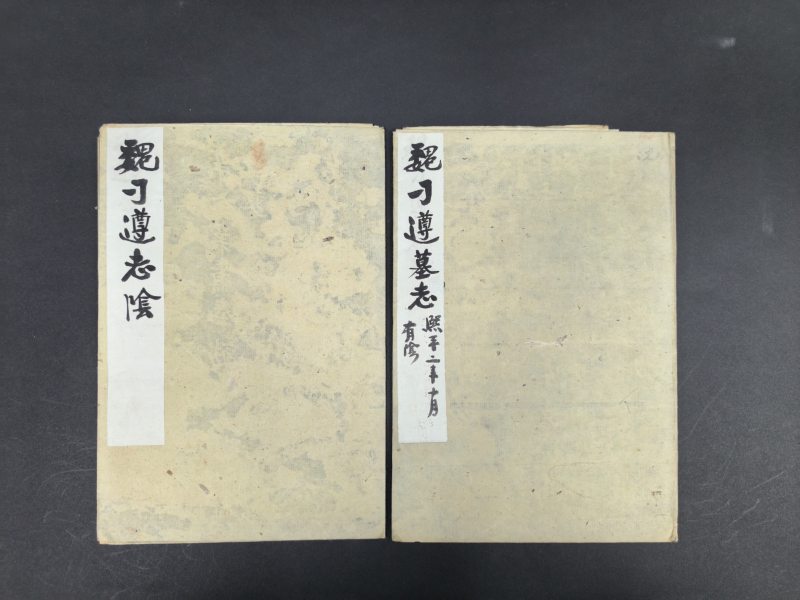 魏刁遵墓志
熙平二年十月
有陰
魏刁遵志陰